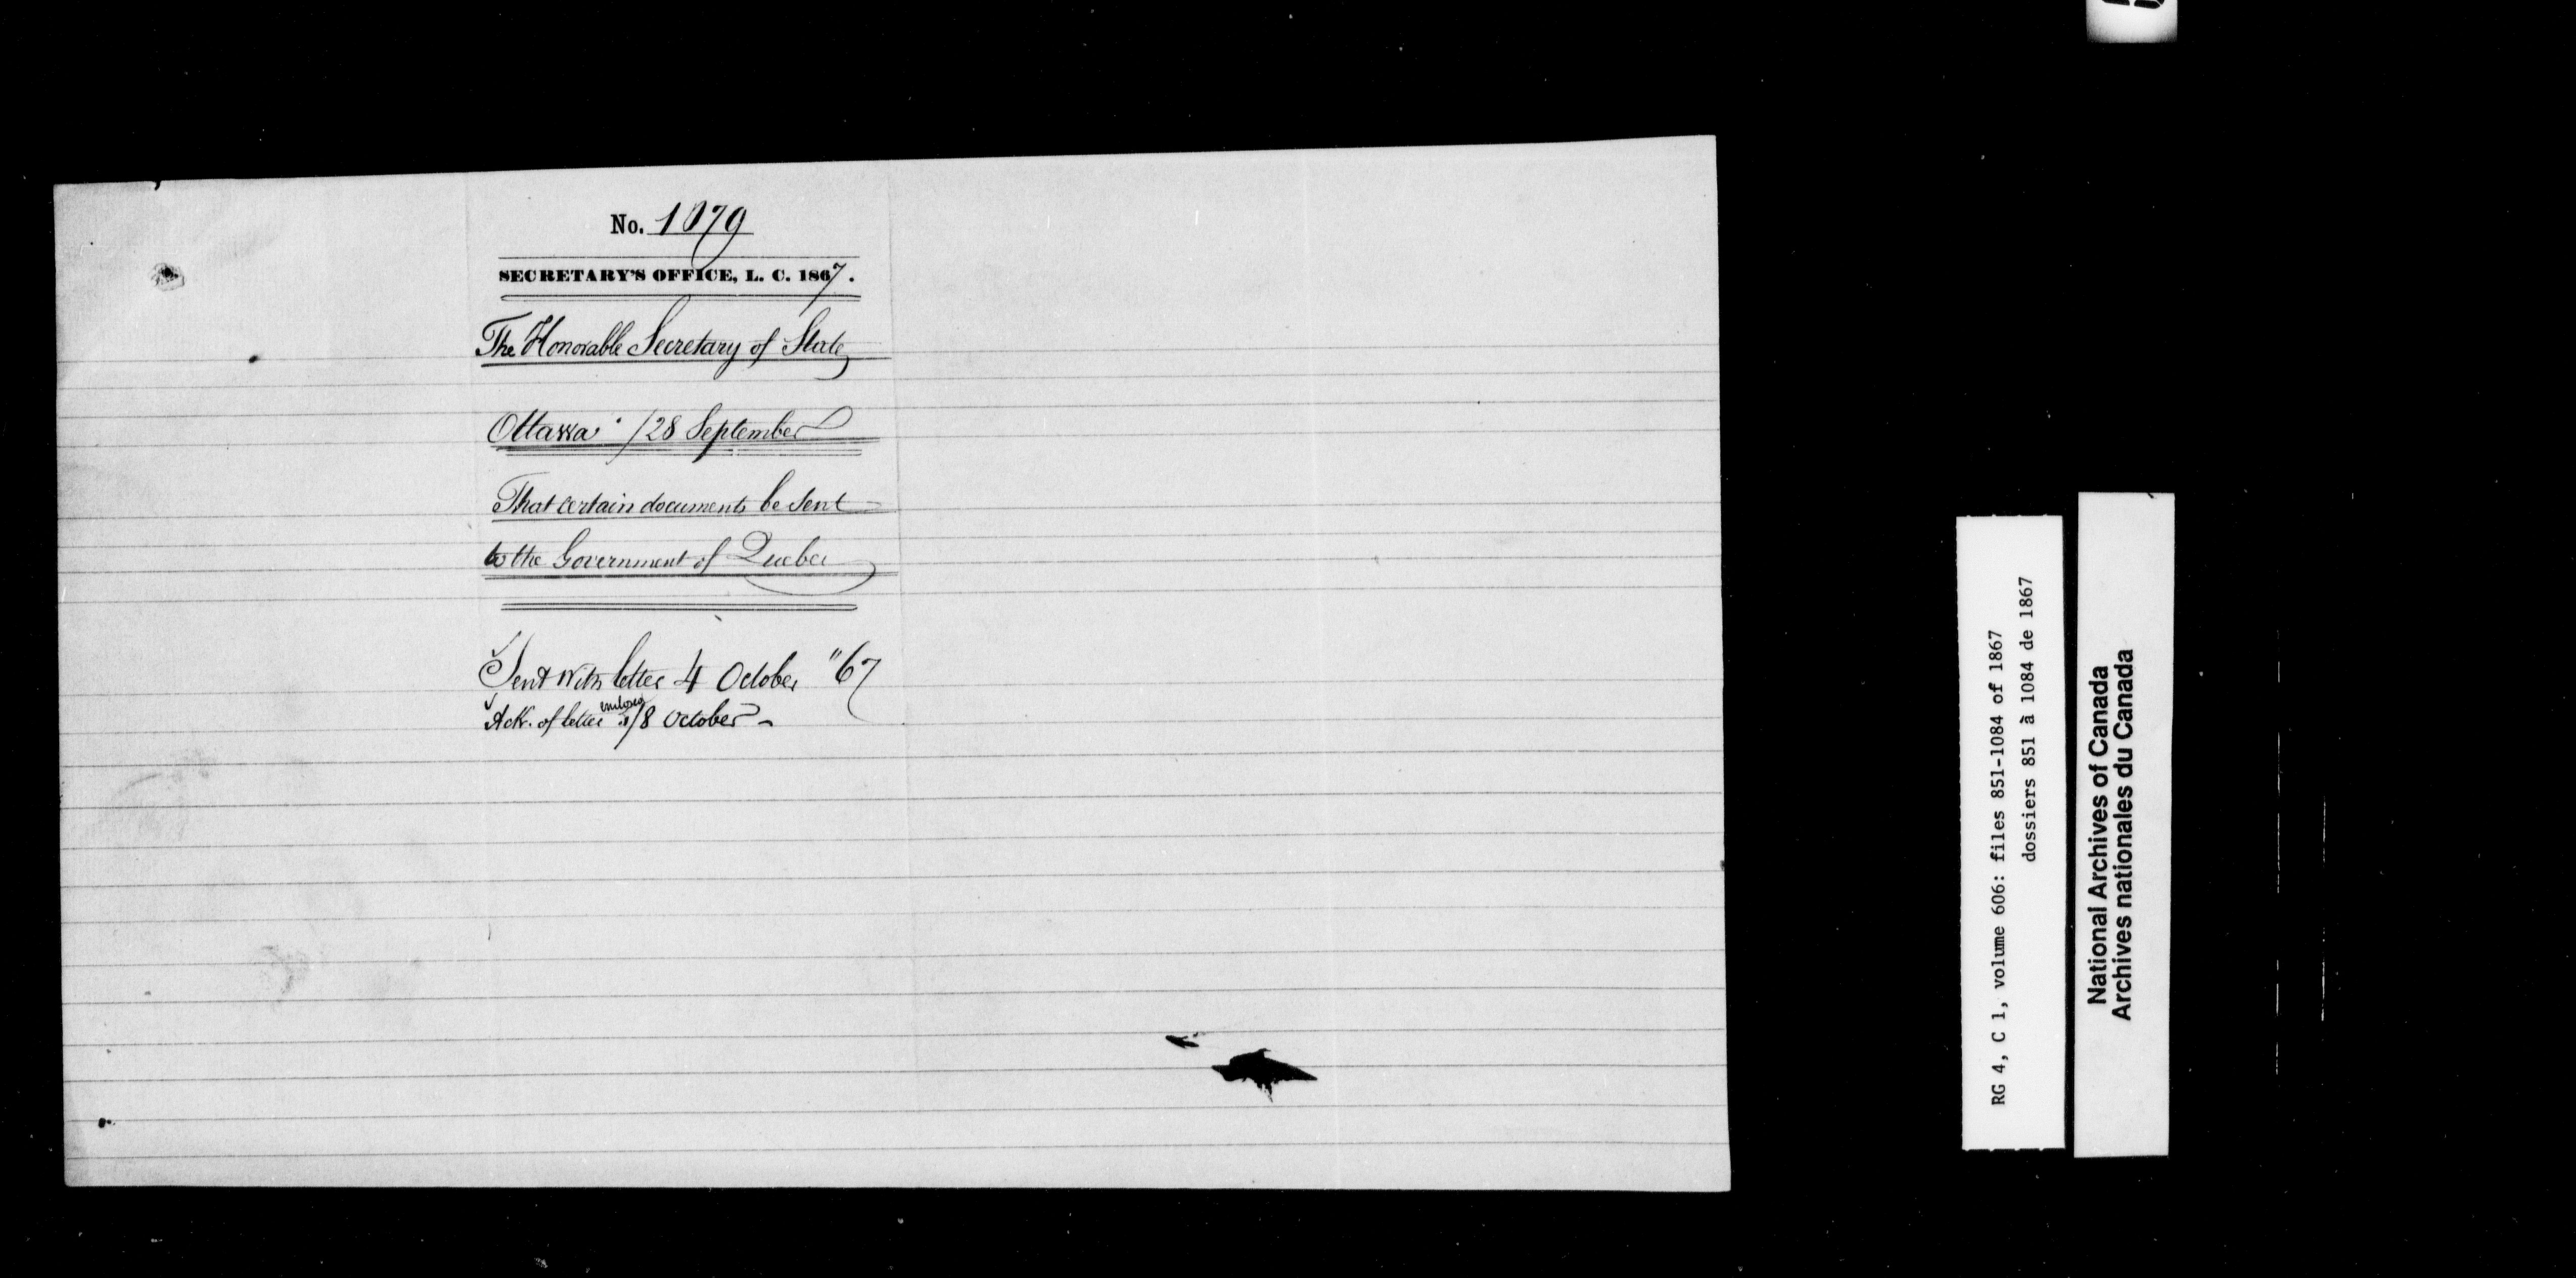 No. 1079
SECRETARY'S OFFICE, L. C. 1867.
The Honorable Secretary of State
Ottawa /28 September
That certain documents be sent
to the Government of Quebec
Sent with letter 4 October "67
Ack. of letter /8 October -
RG 4, C 1, volume 606: files 851-1084 of 1867
dossiers 851 à 1084 de 1867
National Archives of Canada
Archives nationales du Canada